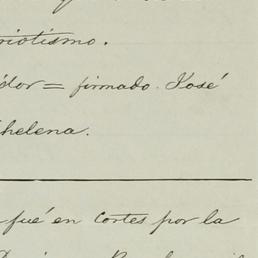 riotismo.
dor = firmado. José
helena.
fué en Cortes por la